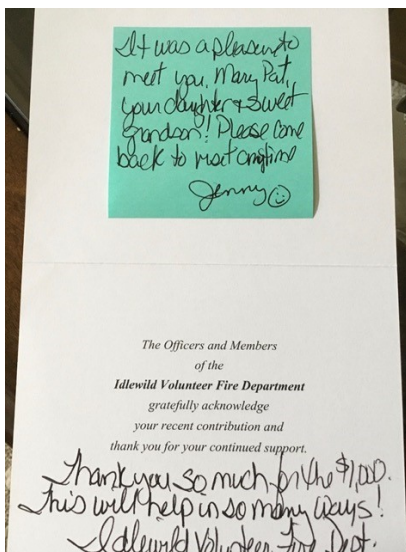 It was a pleasure to
meet you, Mary Pat,
your daughter & sweet
grandson! Please come
back to visit anytime
Jenny
The Officers and Members
of the
Idlewild Volunteer Fire Department
gratefully acknowledge
your recent contribution and
thank you for your continued support.
Thank you so much for the $1,000.
This will help in so many ways!
Idlewild Volunteer Fire Dept.